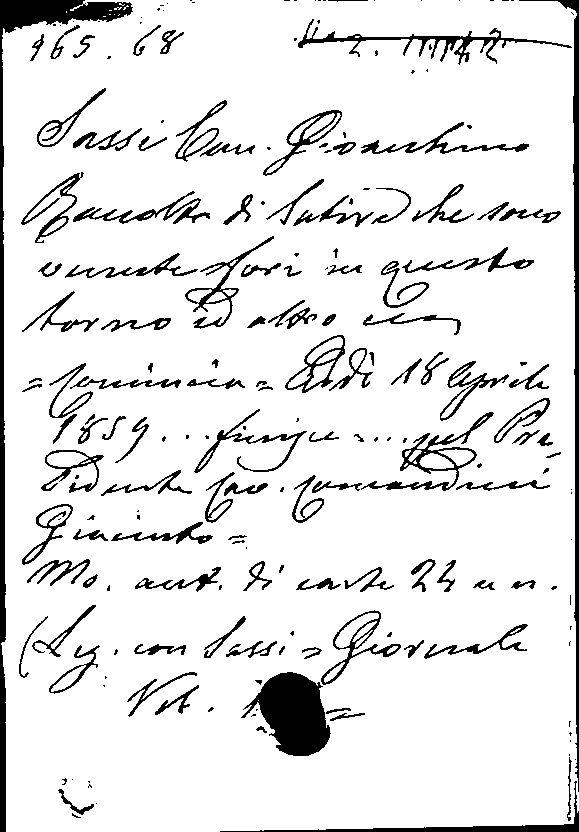 165.68
Sassi Can. Gioacchino
Raccolta di Satire che sono
venute fori in questo
torno ed altro
= Comincia = Addì 18 Aprile
1859 ... finisce = ... pel Pre-
sidente Cav. Comandini
Giacinto =
Ms. aut. di carte 24 n n.
(Leg. con Sassi = Giornale
Vol. =